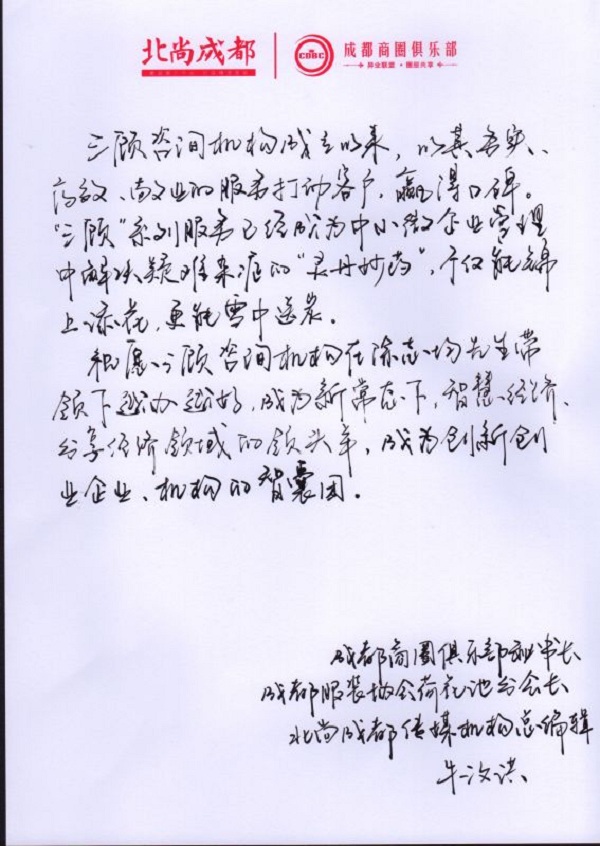 北尚成都
CBBC
成都商圈俱乐部
异业联盟·圈层共享
三顾咨询机构成立以来，以其务实、
高效、敬业的服务打动客户，赢得口碑。
“三顾”系列服务已经成为中小微企业管理
中解决疑难杂症的“灵丹妙药”，不仅能锦
上添花，更能雪中送炭。
祝愿三顾咨询机构在先生带
领下越办越好，成为新常态下，智慧经济、
分享经济领域的领头羊，成为创新创
业企业、机构的智囊团。
成都商圈俱乐部秘书长
成都服装协会荷花池分会长
北尚成都传媒机构总编辑
牛